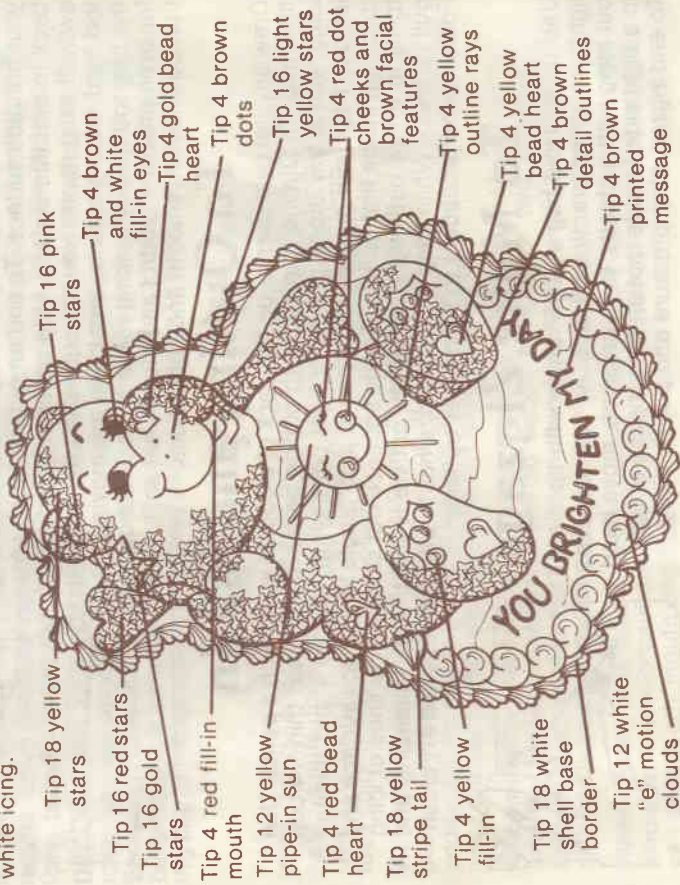 white icing.
Tip 18 yellow
stars
Tip 16 red stars
Tip 16 gold
stars
Tip 4 red fill-in
mouth
Tip 12 yellow
pipe-in sun
Tip 4 red bead
heart
Tip 18 yellow
stripe tail
Tip 4 yellow
fill-in
Tip 18 white
shell base
border
Tip 12 white
"e" motion
clouds
Tip 16 pink
stars
Tip 4 brown
and white
fill-in eyes
Tip 4 gold bead
heart
Tip 4 brown
dots
Tip 16 light
yellow stars
Tip 4 red dot
cheeks and
brown facial
features
Tip 4 yellow
outline rays
Tip 4 yellow
bead heart
Tip 4 brown
detail outlines
Tip 4 brown
printed
message
YOU BRIGHTEN MY DAY